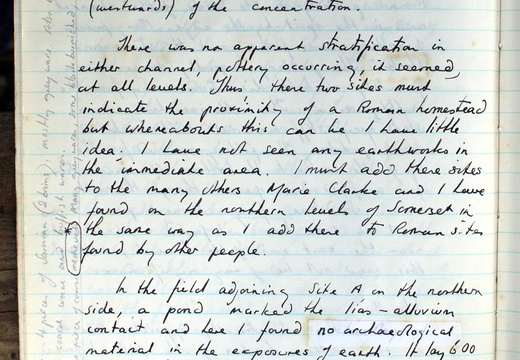 (westwards) of the concentration.
There was no apparent stratification in
either channel, pottery occurring, it seemed,
at all levels. Thus these two sites must
indicate the proximity of a Roman homestead
but whereabouts this can be I have little
idea. I have not seen any earthworks in
the immediate area. I must add these sites
to the many others Marie Clarke and I have
found on the northern levels of Somerset in
the same way as I add these to Roman sites
found by other people.
In the field adjoining Site A on the northern
side, a pond marked the lias-alluvium
contact and here I found no archaeological
material in the exposures of earth. It lay 600